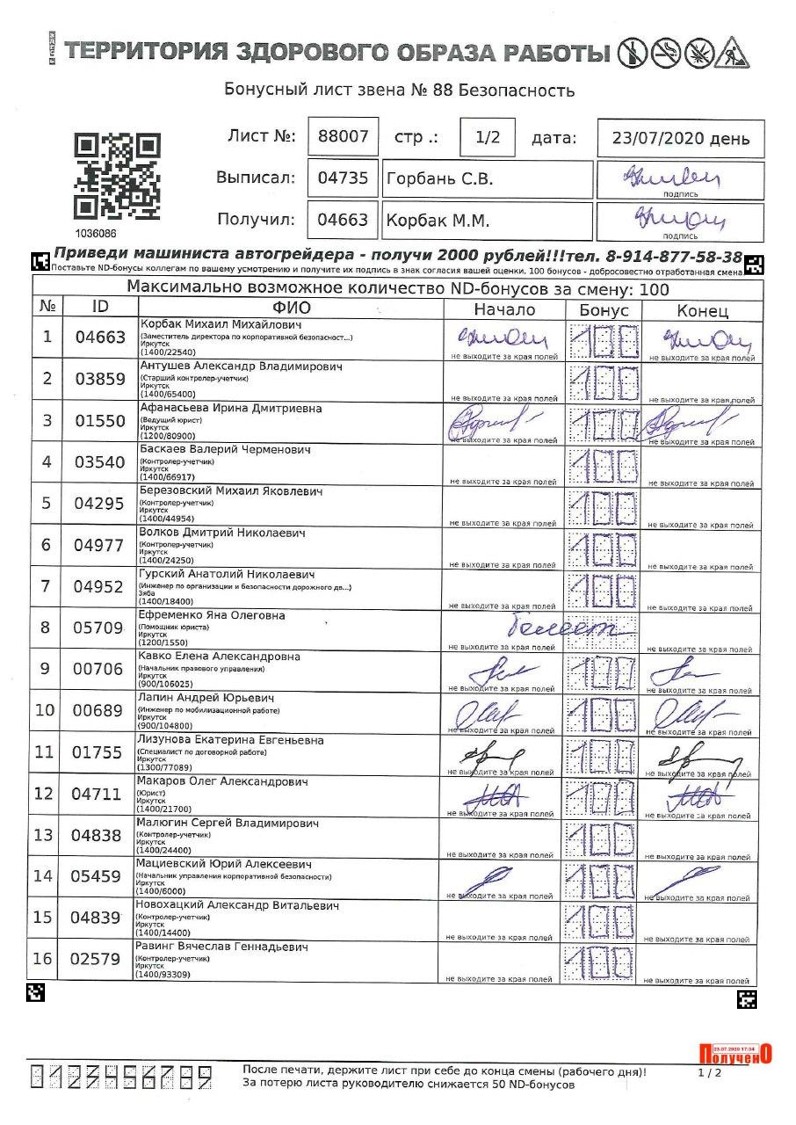 ТЕРРИТОРИЯ ЗДОРОВОГО ОБРАЗА РАБОТЫ
Бонусный лист звена № 88 Безопасность
Лист №: 88007 стр .: 1/2 дата: 23/07/2020 день
Выписал: 04735 Горбань С.В.
подпись
Получил: 04663 Корбак М.М.
подпись
1036086
Приведи машиниста автогрейдера - получи 2000 рублей!!!тел. 8-914-877-58-38
Поставьте ND-бонусы коллегам по вашему усмотрению и получите их подпись в знак согласия вашей оценки. 100 бонусов - добросовестно отработанная смена
Максимально возможное количество ND-бонусов за смену: 100
№ ID ФИО Начало Бонус Конец
1 04663 Корбак Михаил Михайлович 100
(Заместитель директора по корпоративной безопасност...)
Иркутск
(1400/22540) не выходите за края полей не выходите за края полей
2 03859 Антушев Александр Владимирович 100
(Старший контролер-учетчик)
Иркутск
(1400/65400) не выходите за края полей не выходите за края полей
3 01550 Афанасьева Ирина Дмитриевна 100
(Ведущий юрист)
Иркутск
(1200/80900) не выходите за края полей не выходите за края полей
4 03540 Баскаев Валерий Черменович 100
(Контролер-учетчик)
Иркутск
(1400/66917) не выходите за края полей не выходите за края полей
5 04295 Березовский Михаил Яковлевич 100
(Контролер-учетчик)
Иркутск
(1400/44954) не выходите за края полей не выходите за края полей
6 04977 Волков Дмитрий Николаевич 100
(Контролер-учетчик)
Иркутск
(1400/24250) не выходите за края полей не выходите за края полей
7 04952 Гурский Анатолий Николаевич 100
(Инженер по организации и безопасности дорожного дв...)
Зяба
(1400/18400) не выходите за края полей не выходите за края полей
8 05709 Ефременко Яна Олеговна
(Помощник юриста)
Иркутск
(1200/1550) не выходите за края полей не выходите за края полей
9 00706 Кавко Елена Александровна 100
(Начальник правового управления)
Иркутск
(900/106025) не выходите за края полей не выходите за края полей
10 00689 Лапин Андрей Юрьевич 100
(Инженер по мобилизационной работе)
Иркутск
(900/104800) не выходите за края полей не выходите за края полей
11 01755 Лизунова Екатерина Евгеньевна 100
(Специалист по договорной работе)
Иркутск
(1300/77089) не выходите за края полей не выходите за края полей
12 04711 Макаров Олег Александрович 100
(Юрист)
Иркутск
(1400/21700) не выходите за края полей не выходите за края полей
13 04838 Малюгин Сергей Владимирович 100
(Контролер-учетчик)
Иркутск
(1400/24400) не выходите за края полей не выходите за края полей
14 05459 Мациевский Юрий Алексеевич 100
(Начальник управления корпоративной безопасности)
Иркутск
(1400/6000) не выходите за края полей не выходите за края полей
15 04839 Новохацкий Александр Витальевич 100
(Контролер-учетчик)
Иркутск
(1400/14400) не выходите за края полей не выходите за края полей
16 02579 Равинг Вячеслав Геннадьевич 100
(Контролер-учетчик)
Иркутск
(1400/93309) не выходите за края полей не выходите за края полей
ПолученО
0123456789 После печати, держите лист при себе до конца смены (рабочего дня)! 1 / 2
За потерю листа руководителю снижается 50 ND-бонусов